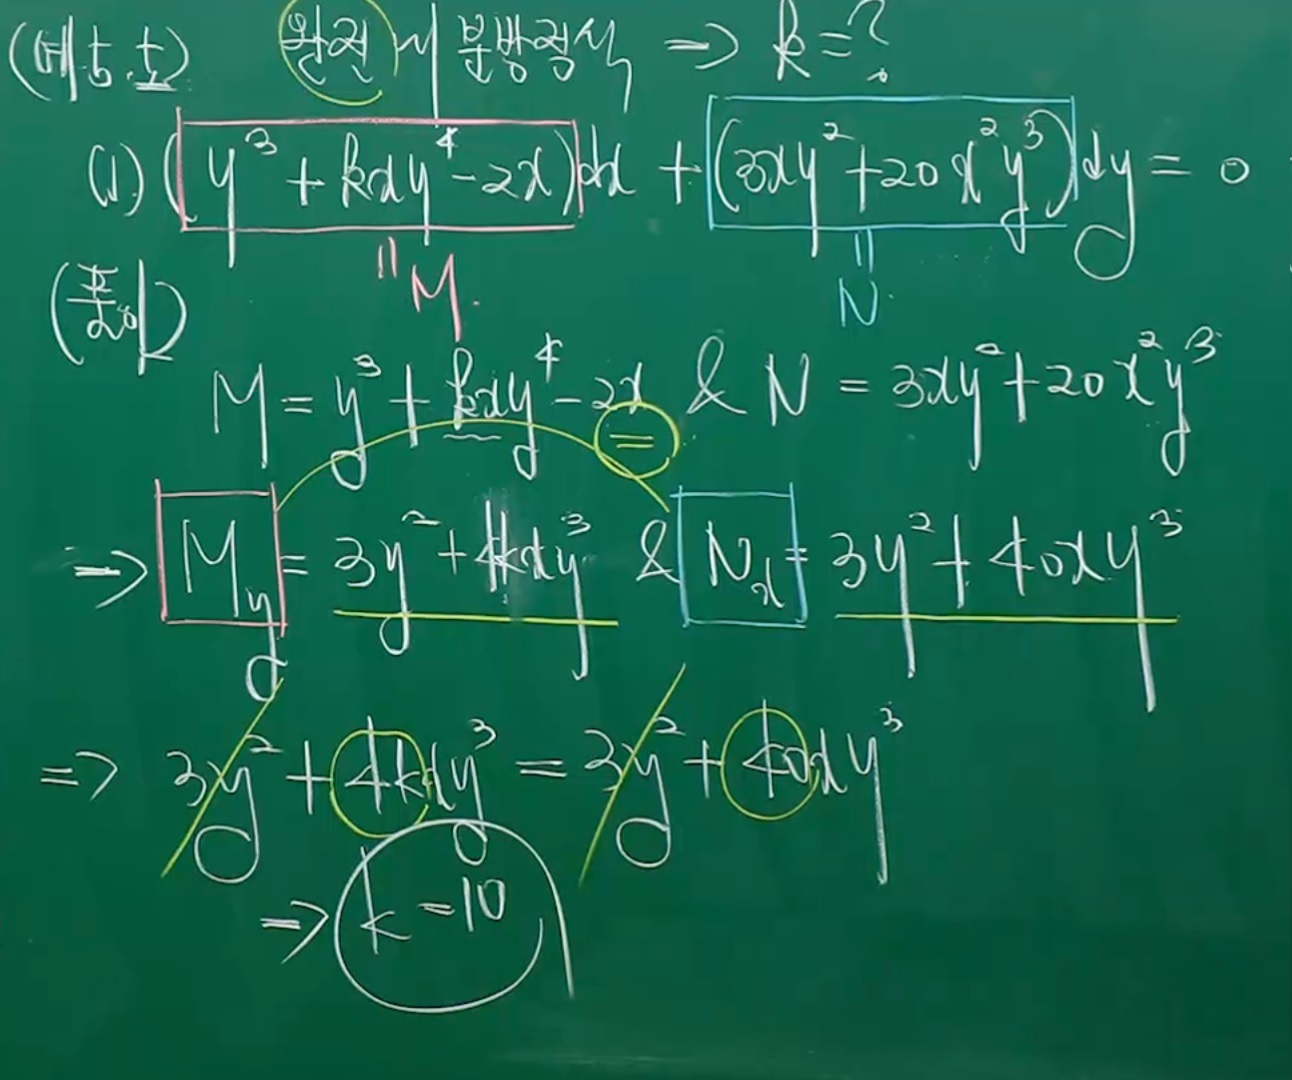 (예5.5) 완전미분방정식 => k=?
(1) (y³ + kxy⁴ - 2x)dx + (3xy² + 20x²y³)dy = 0
" M. " N
(풀이)
M = y³ + kxy⁴ - 2x & N = 3xy² + 20x²y³
=
=> M_y = 3y² + 4kxy³ & N_x = 3y² + 40xy³
=> 3y² + 4kxy³ = 3y² + 40xy³
=> k = 10